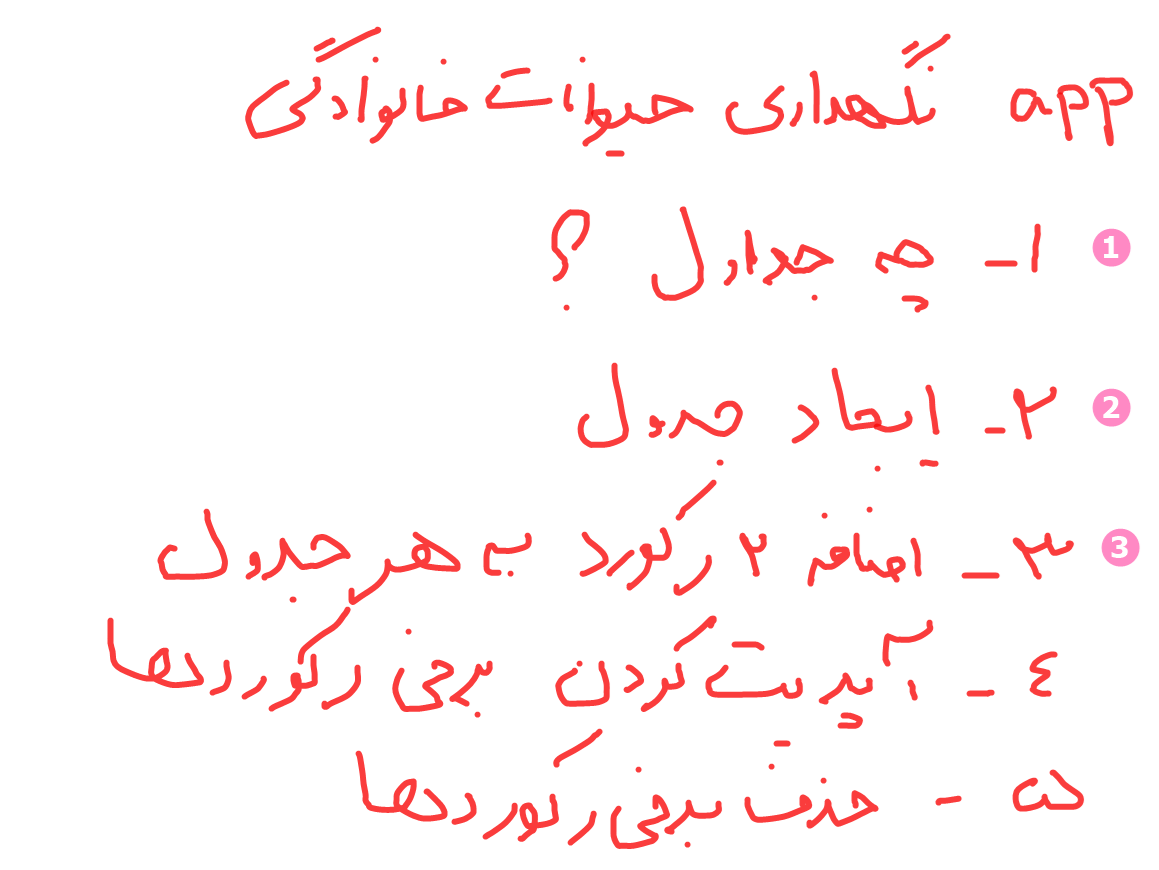 app نگهداری حیوانات خانوادگی
1 ۱- چه جداول ؟
2 ۲- ایجاد جدول
3 ۳- اضافه ۲ رکورد به هر جدول
٤- آپدیت کردن برخی رکوردها
۵- حذف برخی رکوردها